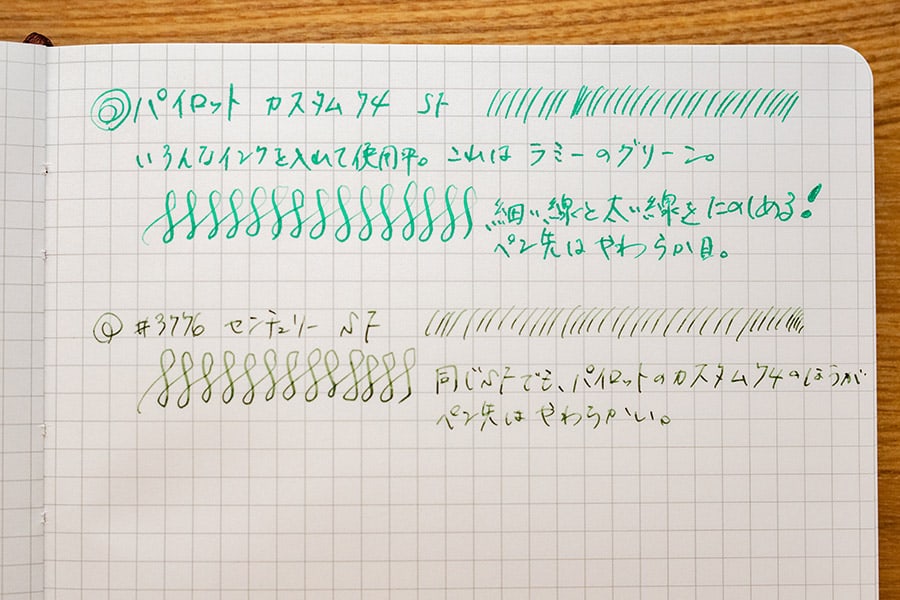 ◎パイロット カスタム74 SF
いろんなインクを入れて使用中。これは ラミーのグリーン。
細い線と太い線をたのしめる!
ペン先はやわらか目。
◎ #3776 センチュリー SF
同じSFでも、パイロットのカスタム74のほうが
ペン先はやわらかい。